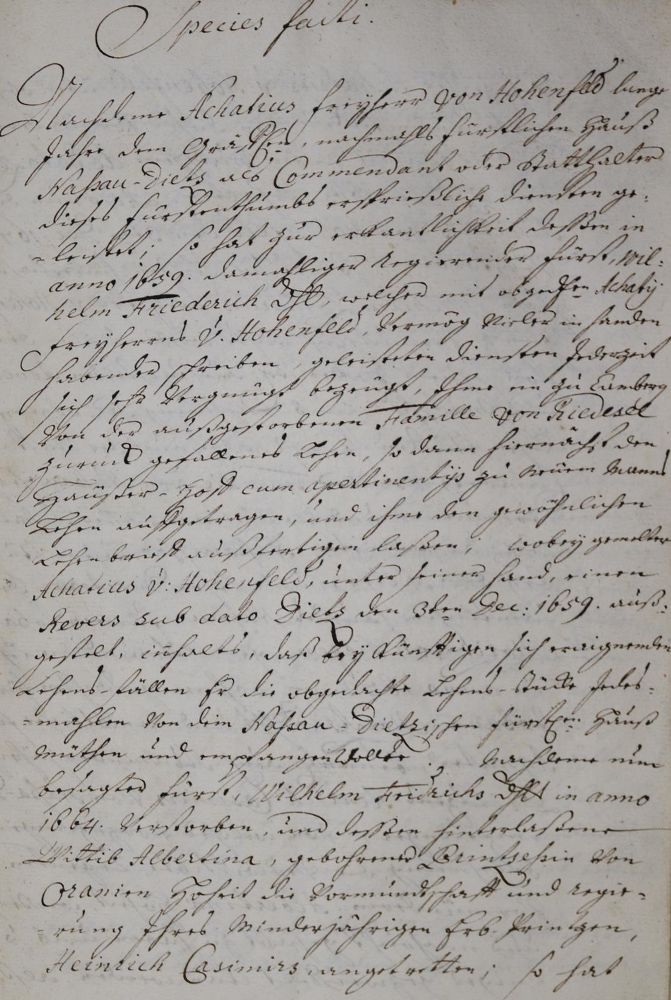 Species facti.
Nachdeme Achatius Freyherr von Hohenfeld lange
Jahre dem Gräfflen, nachmahls fürstlichen Hauß
Naßau-Dietz als Commendant oder Statthalter
dieses Fürstenthumbs ersprießliche diensten ge-
-leistet; so hat zur erkantlichkeit deßen in
anno 1659. damahliger Regierender Fürst, Wil-
helm Friederich Dhlt, welcher mit obgedten Achatij
Freyherrns v. Hohenfeld, Vermög Vieler in handen
habender schreiben, geleisteten diensten Jederzeit
sich sehr Vergnügt bezeugt, Ihme ein zu Camberg
Von der außgestorbenen Famille von Riedesel
zuruck gefallenes Lehen, so dann hiernächst den
Häußer-Hoff cum apertinentijs zu neuem Manns
Lehen auffgetragen, und ihme den gewöhnlichen
Lehenbrieff außfertigen laßen; wobey gemelter
Achatius v: Hohenfeld, unter seiner hand, einen
Revers sub dato Dietz den 3ten Dec: 1659. auß-
gestelt, inhalts, daß bey künfftigen sich eraignenden
Lehens-fällen Er die obgedachte Lehens-stücke Jedes-
-mahlen Von dem Naßau-Dietzischen fürstlen Hauß
muthen und empfangen wolle. Nachdeme nun
besagter Fürst, Wilhelm Fridrichs Dhlt in anno
1664. Verstorben, und deßen hinterlaßene
Wittib Albertina, gebohrene Printzeßin Von
Oranien Hoheit die Vormundschafft und regie-
-rung Ihres Minderjährigen Erb-Printzen,
Heinrich Casimirs, angetretten; so hat